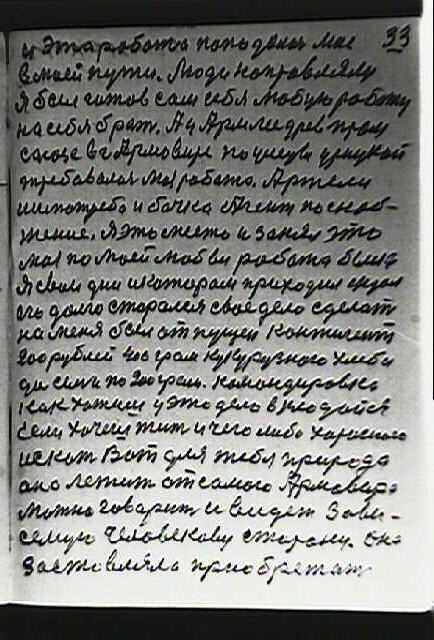 33
и эта работа попадалас мне
в моей пути. Люди направляли
Я был готов сам себя любую работу
на себя брат. А у Армле древ пром
союзе в г Армовире по
требавалас моя работа. Артели
нужно и бочка Агент по снаб-
жению. Я это место и занял это
моя по моей любви работа была
Я свои дни в котором приходил
ос долго старался свое дело сделат
на меня был отпущен контингент
200 рублей 400 грам кукурузного хлеба
де семи по 200 грам. командировка
как хотиш у это дело вклодайся
если хочеш жит и чего либо хорошого
искат Вот для тебя природа
она лежит от самого Армовира
можно говорит и видет Зави-
семую человекову сторону. Она
Заставляла приобретат